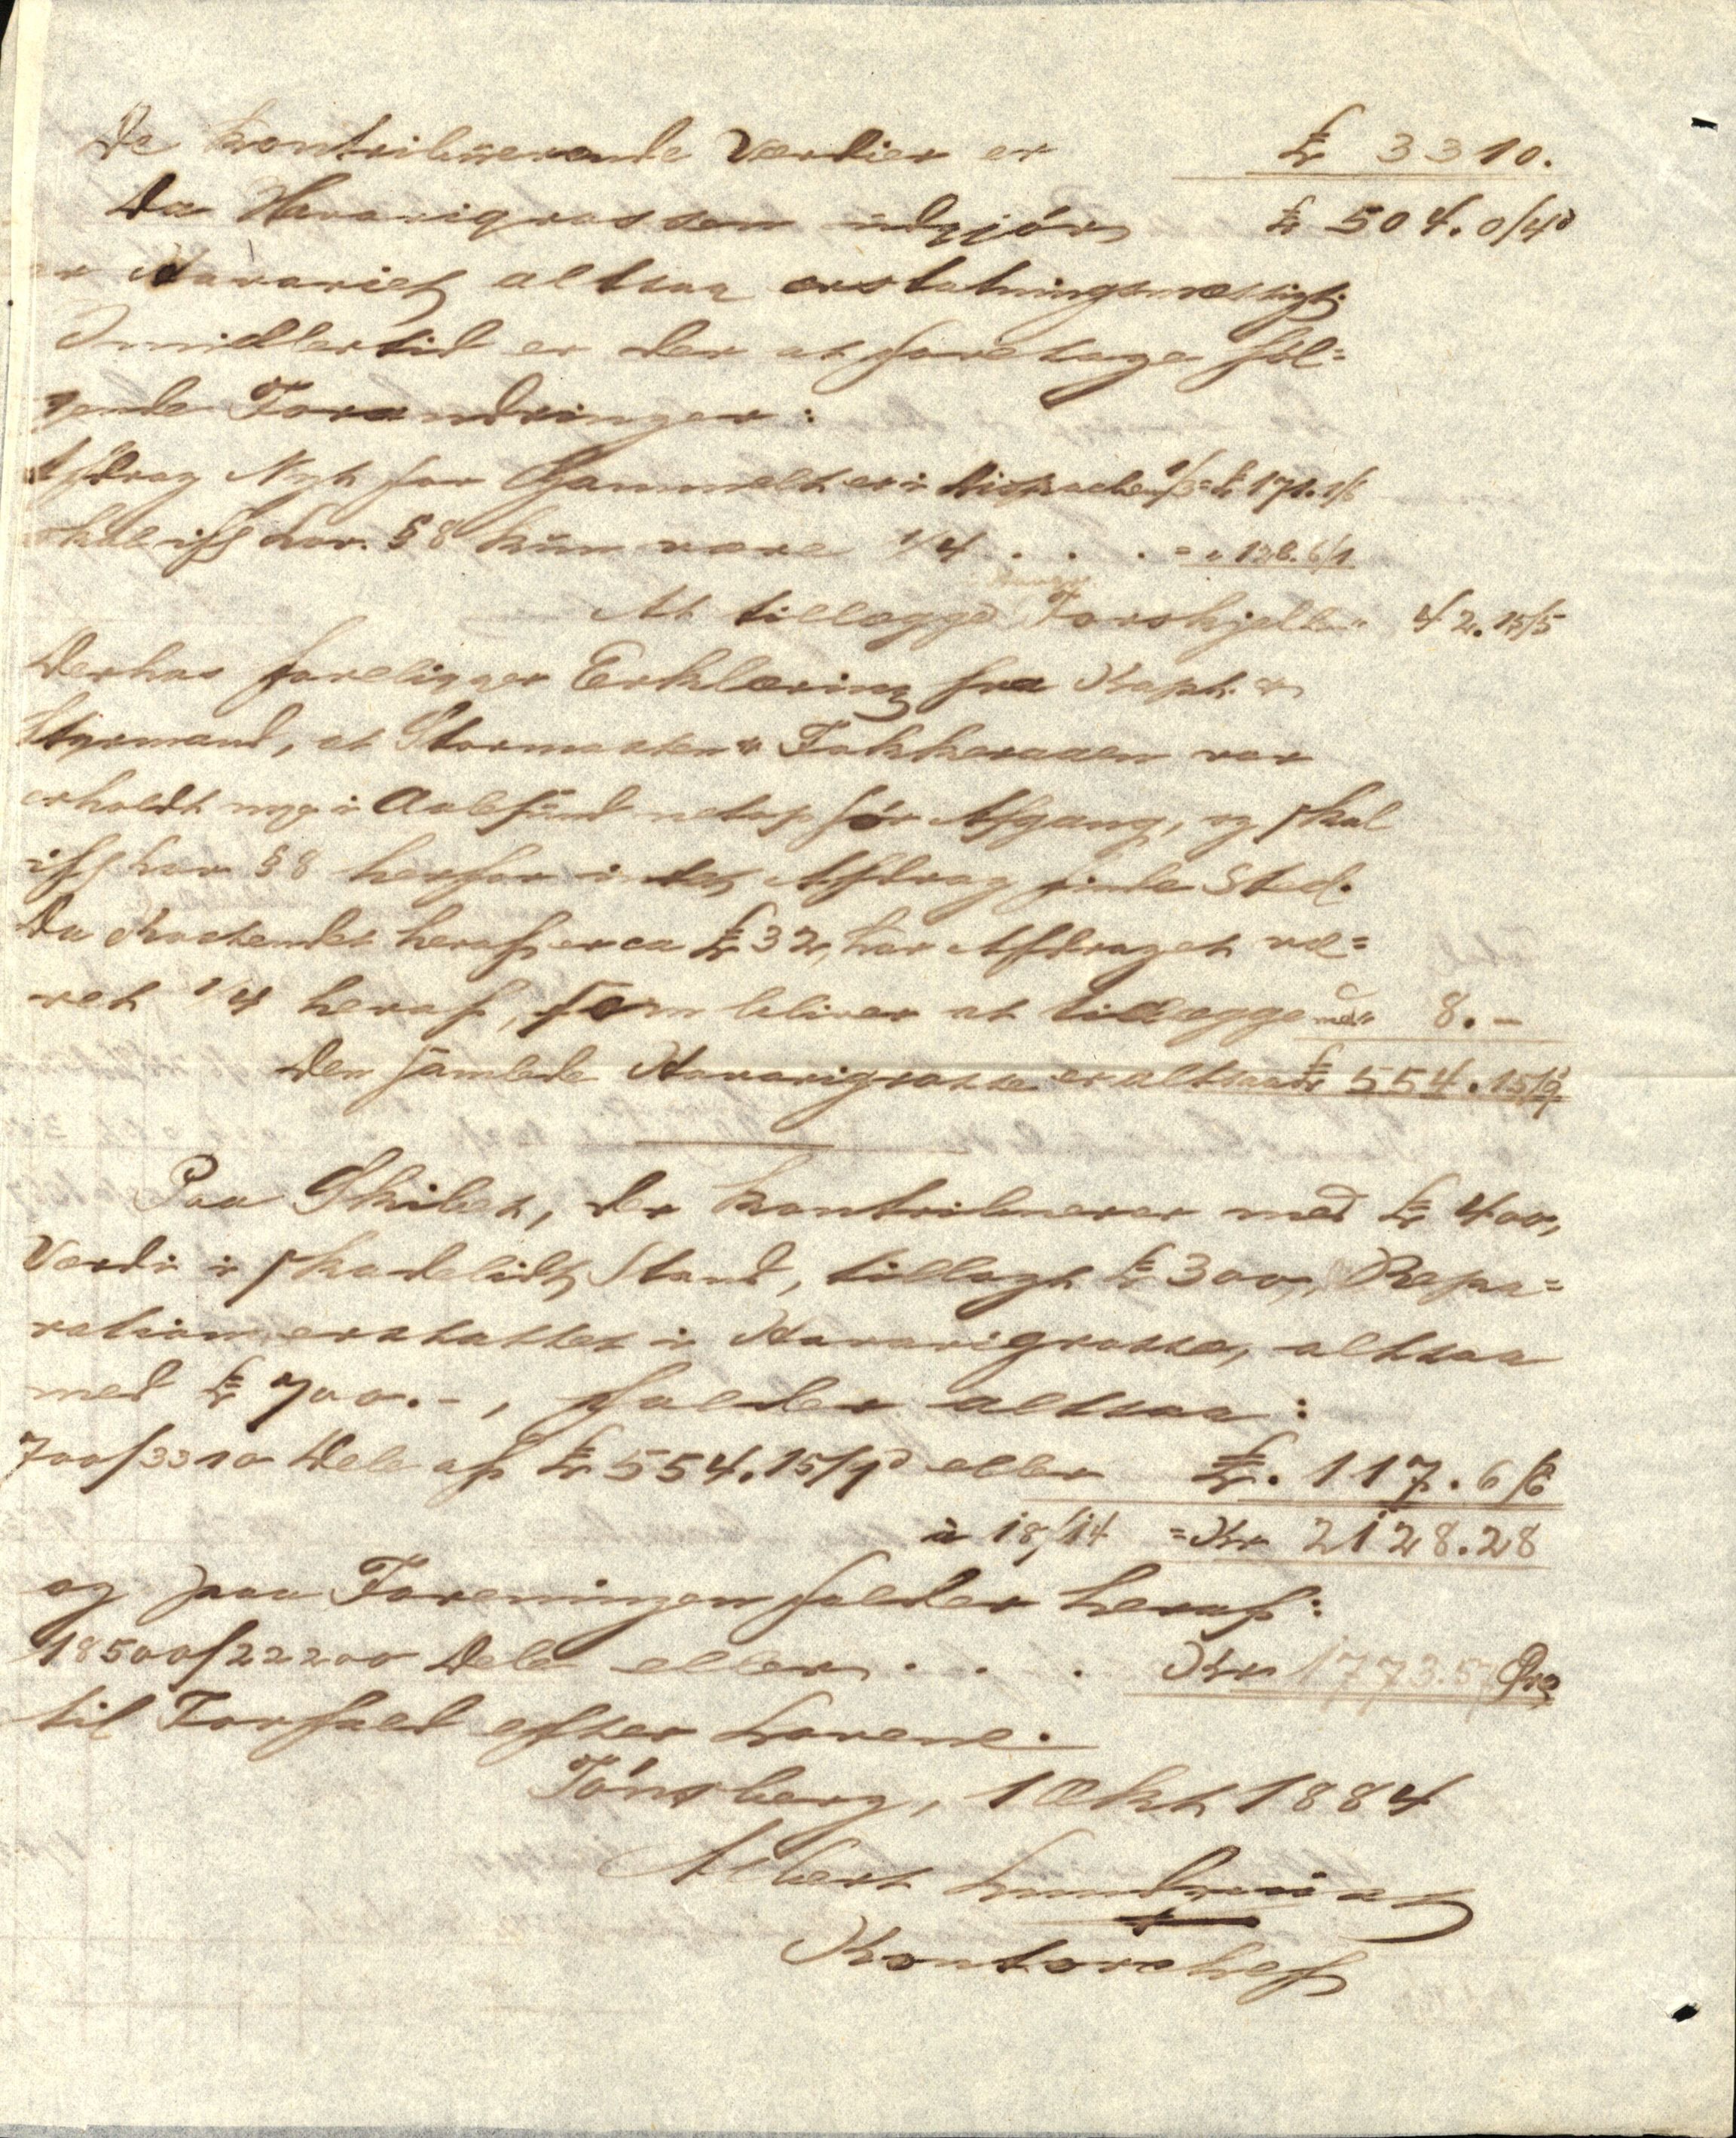 De kontribuerende Værdier er £ 3310.
Da Havarigrossen udgjör £ 504.0/4d
er Havariet altsaa erstatningsmæssigt.
Imidlertid er der at foretage föl=
gende Forandringer:
Afdrag Nyt for Gammelt er i Dispachen 1/3 = £ 171.1/6
skal iflg Lov. §8 kun være 1/4 . . . = " 128.6/1
At tillægge Forskjellen " 42.15/5
Derhos foreligger Erklæring fra Kapt. &
Styrmand, at Stormasten & Fokkeraaen var
erholdt nye i Aalesund netop før Afgang, og skal
iflg Lov §8 herfor intet Afdrag finde Sted.
Da Kostendet heraf er ca £ 32, har Afdraget væ=
ret 1/4 heraf, som bliver at tillægge med " 8.-
Den samlede Havarigrosse er altsaa £ 554.15/9d
Paa Skibet, der kontribuerer med £ 400,
Værdi i skadelidt Stand, tillagt £ 300, Repa=
rationer erstattet i Havarigrosse, altsaa
med £ 700.-, falder altsaa:
700/3310 Dele af £ 554.15/9d eller £. 117.6/6
à 18/14 = Kr 2128.28
og paa Foreningen falder heraf:
18500/22200 Dele eller . . . Kr 1773.57 Øre
til Forfald efter Lovene.
Tönsberg, 1 Okt 1884
Albert
Kontorchef